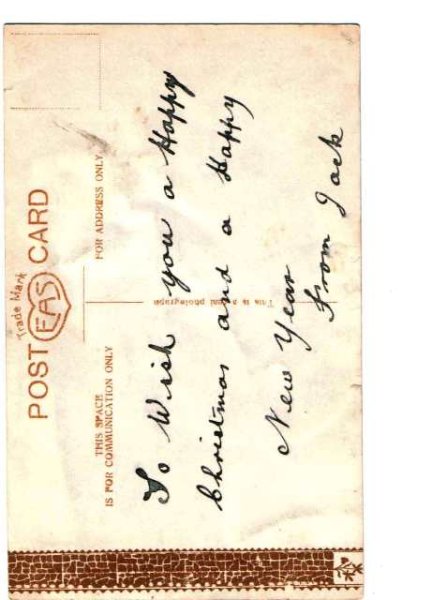 Trade Mark
POST EAS CARD
THIS SPACE
IS FOR COMMUNICATION ONLY
FOR ADDRESS ONLY
This is a real photograph
To Wish you a Happy
Christmas and a Happy
New Year
From Jack